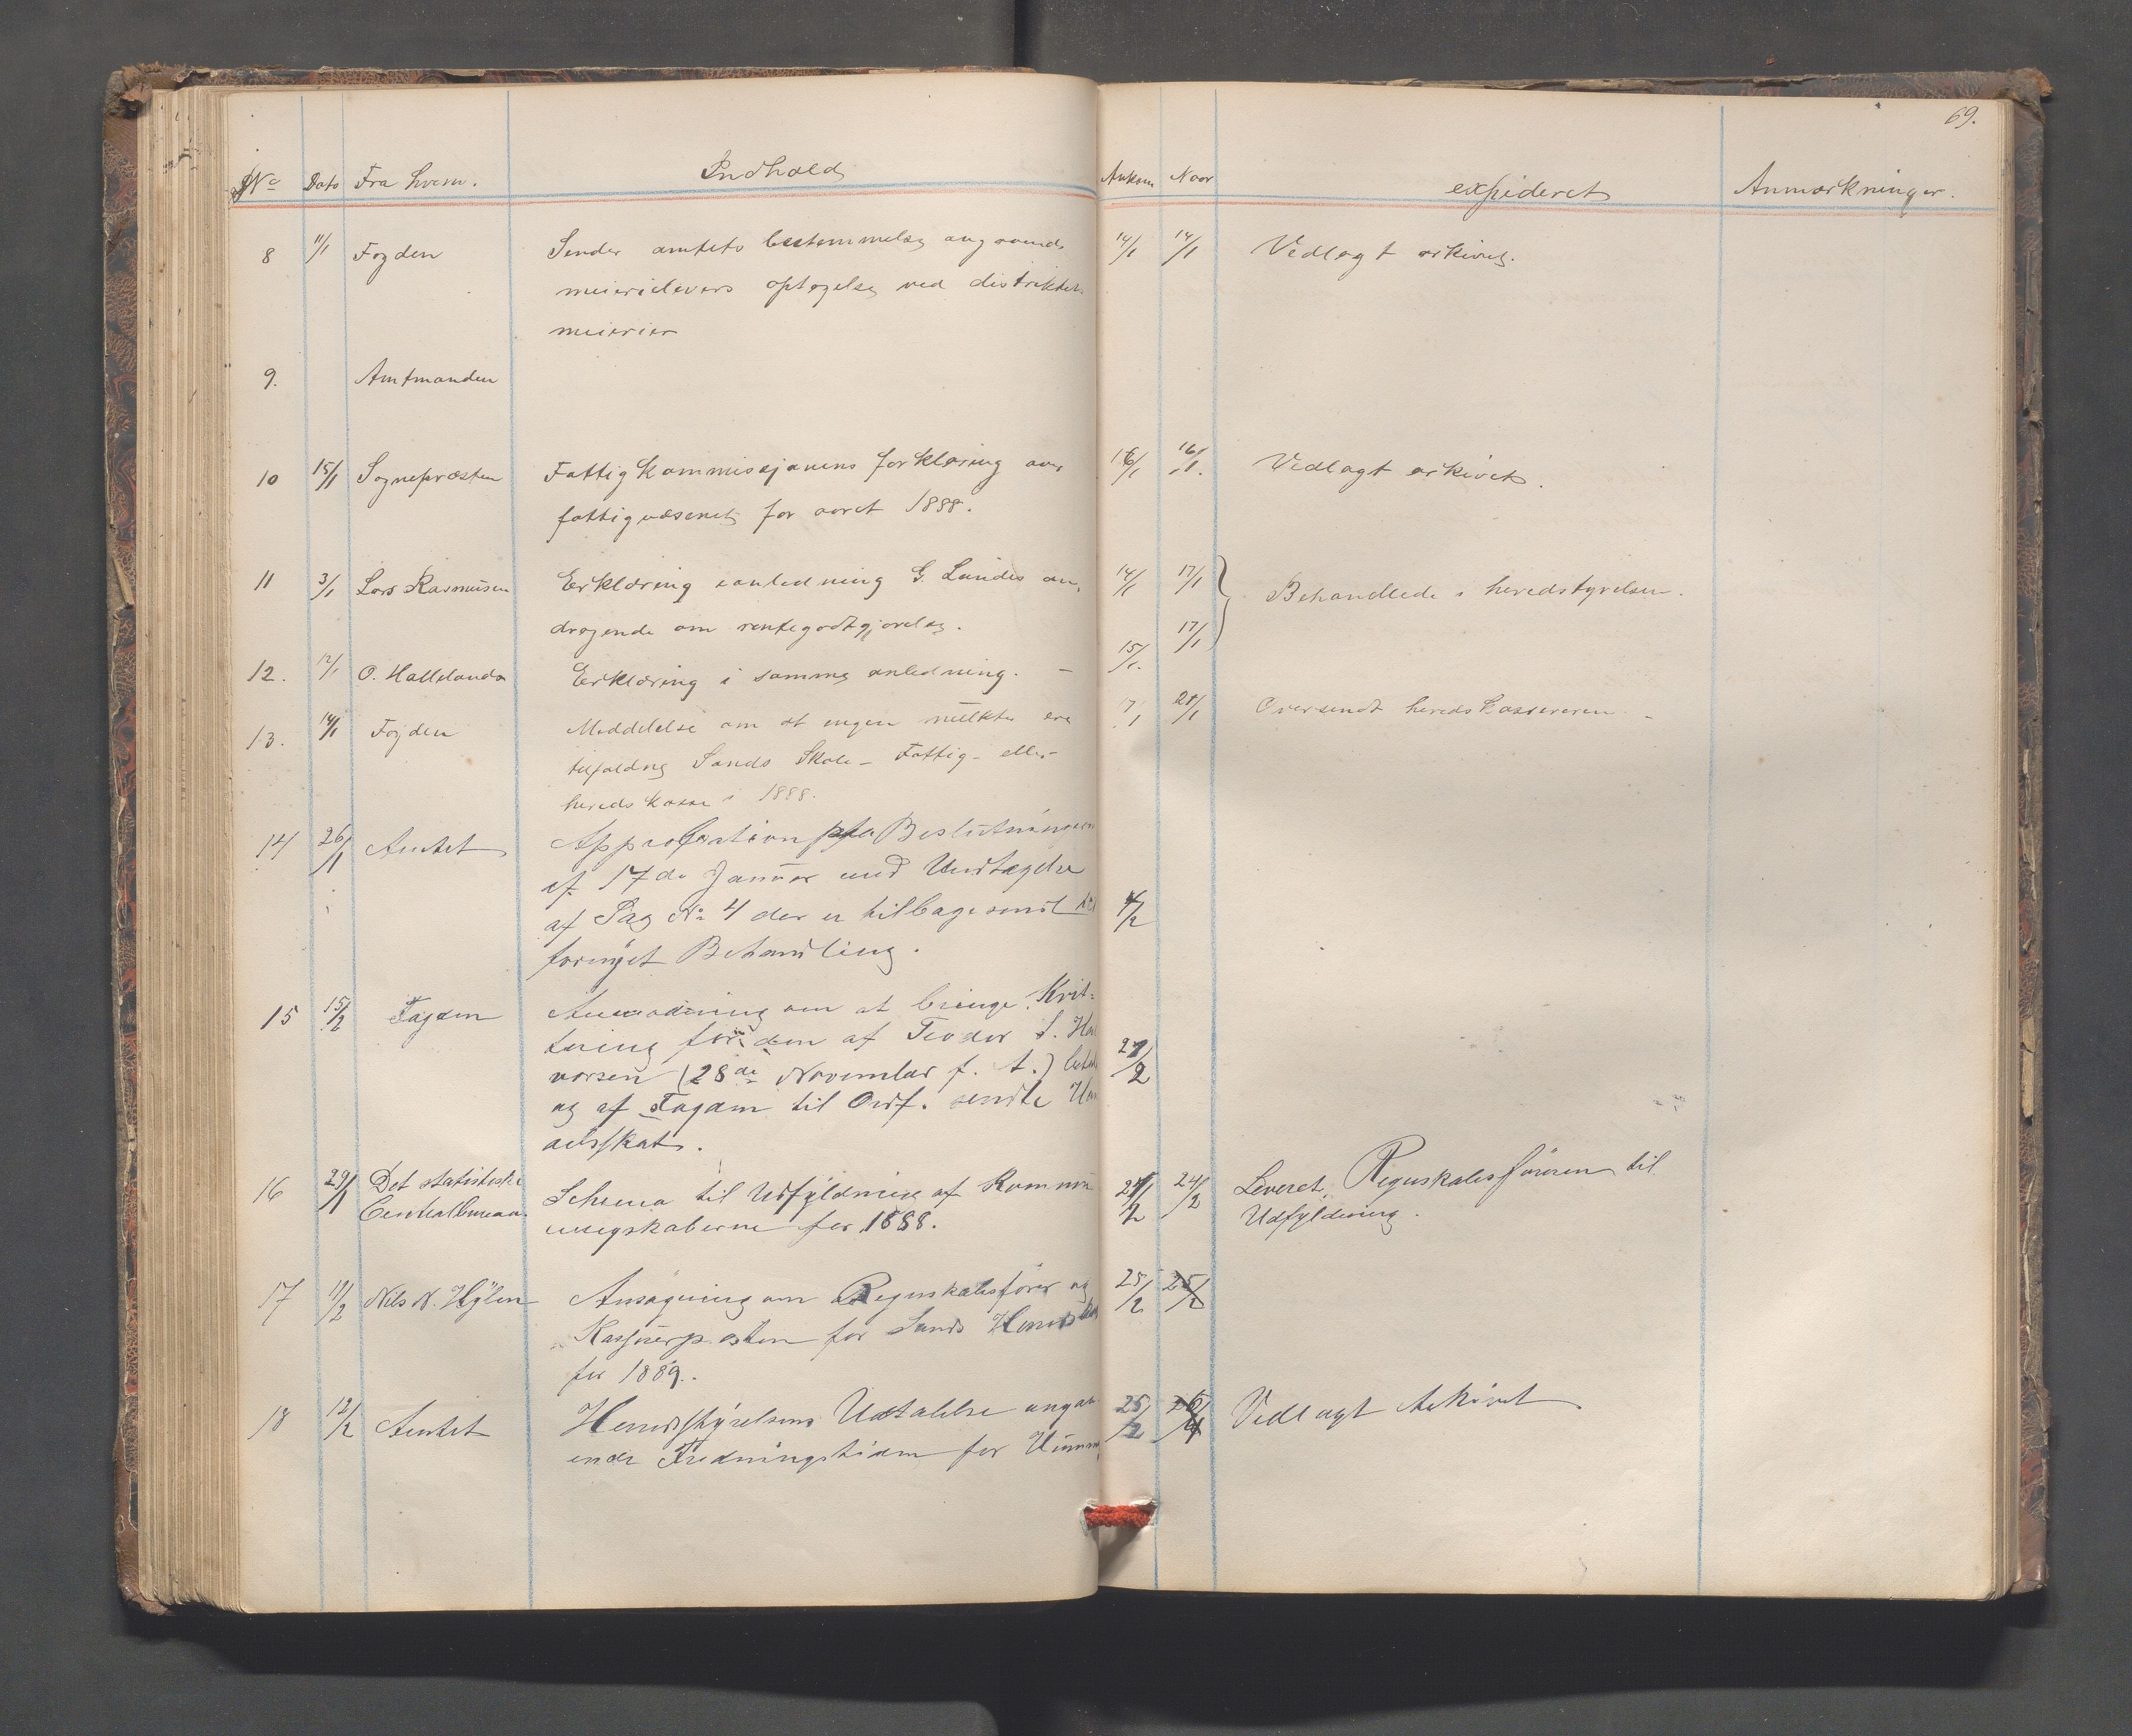 69.
No Dato Fra hvem. Indhold Ankom Naar expideret Anmærkninger.
8 11/1 Fogden Sender amtets bestemmelse angaaende 14/1 14/1 Vedlagt arkivet.
meierielevers optagelse ved distriktets
meierier
9. Amtmanden
10 15/1 Sognepræsten Fattigkommissjonens forklaring over 16/1 16/1. Vedlagt arkivet.
fattigvæsenet for aaret 1888.
11 3/1 Lars Rasmusen Erklæring i anledning G. Landes an, 14/1 17/1 Behandlede i heredstyrelsen.
dragende om rentegodtgjørelse. 17/1
12. 12/1 O. Hallelands Erklæring i samme anledning. – 15/1.
13. 14/1 Fogden Meddelelse om at ingen mulkter ere 17/1 21/1 Oversendt heredskassereren –
tilfaldne Sands Skole – Fattig – eller
heredskasse i 1888.
14 26/1 Amtet Approbation paa Beslutningerne
af 17de Januar med Undtagelse
af Sag No 4 der er tilbagesendt til 4/2
fornyet Behandling.
15 15/2 Fogden Anmodning om at bringe Kvit-
tering for den af Teodor S. Hal
vorsen (28de November f. A.) betal 21/2
og af Fogden til Ordf. sendte Un
delsskat.
16 29/1 Det statistiske Centralbureau Schema til Udfyldning af Kommu 21/2 24/2 Leveret Regnskabsføreren til
neregskaberne for 1888. Udfyldning.
17 11/2 Nils N. Hylen Ansøgning om Regnskabsfører og 25/2 25/2
Kasserposten for Sands Hereds
for 1889.
18 12/2 Amtet Heredsstyrelsens Udtalelse angaa 25/2 Vedlagt Arkivet
ende Fredningstiden for Hummer